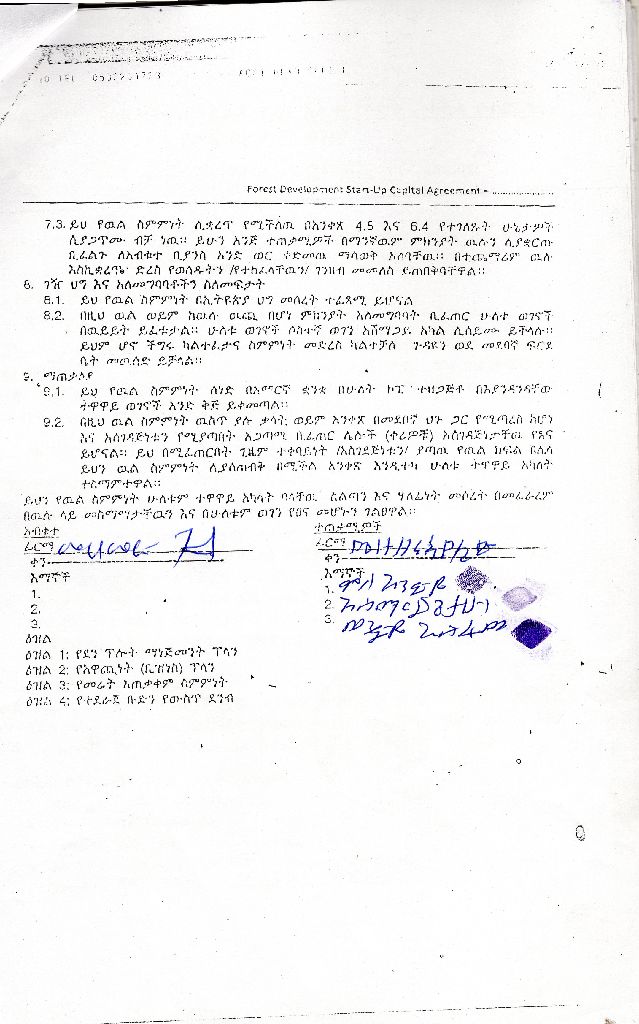 Forest Development Start-Up Capital Agreement -
7.3. ይህ የዉል ስምምነት ሊቋረጥ የሚችለዉ በአንቀጽ 4.5 እና 6.4 የተገለጹት ሁኔታዎች
ሲያጋጥሙ ብቻ ነዉ። ይሁን እንጅ ተጠቃሚዎች በማንኛዉም ምክንያት ዉሉን ሲያቋርጡ
ቢፈልጉ ለአብቁተ ቢያንስ አንድ ወር ቀድመዉ ማሳወቅ አለባቸዉ። በተጨማሪም ዉሉ
እስኪቋረጥ ድረስ የወሰዱትን /የተከፈላቸዉን/ ገንዘብ መመለስ ይጠበቅባቸዋል።
8. ገዥ ህግ እና አለመግባባቶችን ስለመፍታት
8.1. ይህ የዉል ስምምነት በኢትዩጵያ ህግ መሰረት ተፈጻሚ ይሆናል
8.2. በዚህ ዉል ወይም ከዉሉ ዉጪ በሆነ ምክንያት አለመግባባት ቢፈጠር ሁለቱ ወገኖች
በዉይይት ይፈቱታል። ሁለቱ ወገኖች ሶስተኛ ወገን አሸማጋይ አካል ሊሰይሙ ይችላሉ።
ይህም ሆኖ ችግሩ ካልተፈታና ስምምነት መድረስ ካልተቻለ ጉዳዩን ወደ መደበኛ ፍርድ
ቤት መዉሰድ ይቻላል።
9. ማጠቃለያ
9.1. ይህ የዉል ስምምነት ሰነድ በአመርኛ ቋንቋ በሁለት ኮፒ ተዘጋጅቶ በእያንዳንዳቸው
ተዋዋይ ወገኖች አንድ ቅጅ ይቀመጣል።
9.2. በዚህ ዉል ስምምነት ዉስጥ ያሉ ቃላት ወይም አንቀጽ በመደበኛ ህጉ ጋር የሚጣረስ ከሆነ
እና አስገዳጅነቱን የሚያጣበት አጋጣሚ ቢፈጠር ሌሎች (ቀሪዎቹ) አስገዳጅነታቸዉ የጸና
ይሆናል። ይህ በሚፈጠርበት ጊዜም ተቀባይነት /አስገዳጅነቱን/ ያጣዉ የዉል ክፍል በሌላ
ይህን ዉል ስምምነት ሊያስጠብቅ በሚችል አንቀጽ እንዲተካ ሁለቱ ተዋዋይ አካላት
ተስማምተዋል።
ይህን የዉል ስምምነት ሁለቱም ተዋዋይ አካላት ባላቸዉ ስልጣን እና ሃላፊነት መሰረት በመፈራረም
በዉሉ ላይ መስማማታቸዉን እና በሁለቱም ወገን የጸና መሆኑን ገልፀዋል።
አብቁተ
ተጠቃሚዎች
ፊርማ
ፊርማ
ቀን
ቀን
እማኞች
እማኞች
1.
1.
2.
2.
3.
3.
ዕዝል
ዕዝል 1: የደን ፕሎት ማኔጅመንት ፕላን
ዕዝል 2: የአዋጪነት (ቢዝነስ) ፕላን
ዕዝል 3: የመሬት አጠቃቀም ስምምነት
ዕዝል 4: የተደራጀ ቡድን የውስጥ ደንብ